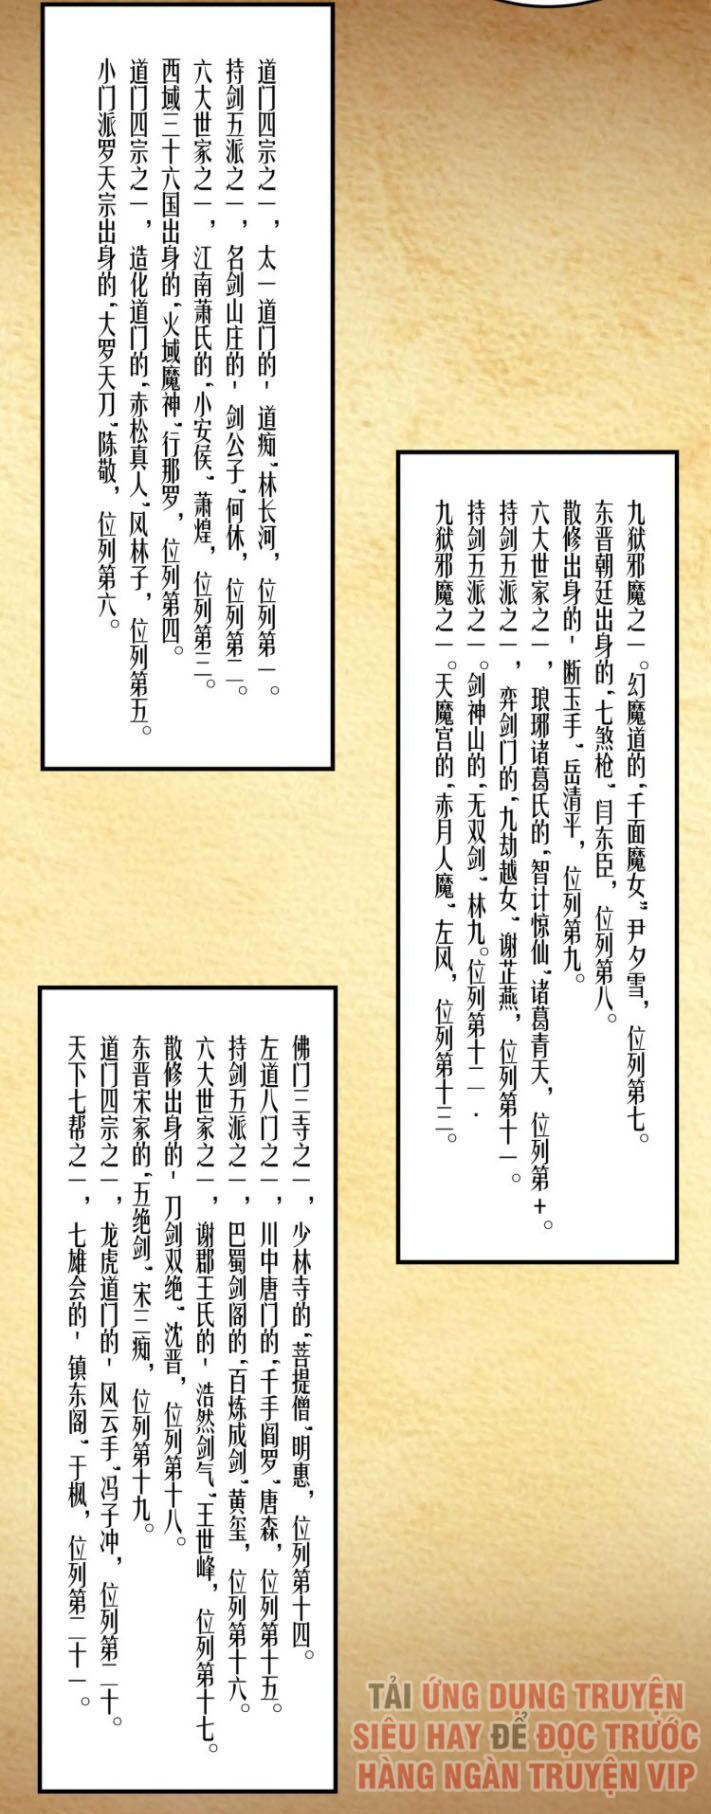 道门四宗之一，太一道门的'道痴"林长河，位列第一。
持剑五派之一，名剑山庄的'剑公子"何休，位列第二。
六大世家之一，江南萧氏的"小安侯"萧煌，位列第三。
西域三十六国出身的"火域魔神"行那罗，位列第四。
道门四宗之一，造化道门的"赤松真人"风林子，位列第五。
小门派罗天宗出身的"大罗天刀"陈敬，位列第六。
九狱邪魔之一。幻魔道的"千面魔女"尹夕雪，位列第七。
东晋朝廷出身的"七煞枪"闫东臣，位列第八。
散修出身的'断玉手"岳清平，位列第九。
六大世家之一，琅琊诸葛氏的"智计惊仙"诸葛青天，位列第+。
持剑五派之一，弈剑门的"九劫越女"谢芷燕，位列第十一。
持剑五派之一。剑神山的"无双剑"林九。位列第十二.
九狱邪魔之一。天魔宫的"赤月人魔"左风，位列第十三。
佛门三寺之一，少林寺的"菩提僧"明惠，位列第十四。
左道八门之一，川中唐门的"千手阎罗"唐森，位列第十五。
持剑五派之一，巴蜀剑阁的"百炼成剑"黄玺，位列第十六。
六大世家之一，谢郡王氏的'浩然剑气"王世峰，位列第十七。
散修出身的'刀剑双绝"沈晋，位列第十八。
东晋宋家的"五绝剑"宋三痴，位列第十九。
道门四宗之一，龙虎道门的'风云手"冯子冲，位列第二十。
天下七帮之一，七雄会的'镇东阁"于枫，位列第二十一。
TẢI ỨNG DỤNG TRUYỆN
SIÊU HAY ĐỂ ĐỌC TRƯỚC
HÀNG NGÀN TRUYỆN VIP